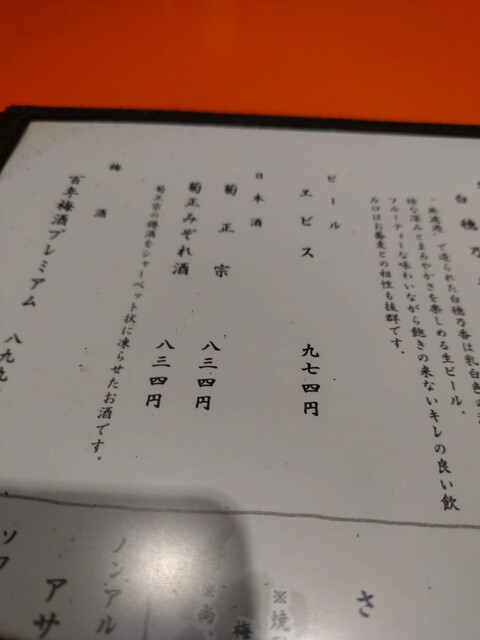 白穂乃
"無濾過"で造られた白穂乃香は乳白色の
特な深みとまろやかさを楽しめる生ビール。
フルーティーな味わいながら飽きの来ないキレの良い飲
み口はお蕎麦との相性も抜群です。
ビール
ヱビス 九七四円
日本酒
菊正宗 八三四円
菊正みぞれ酒 八三四円
菊正宗の樽酒をシャーベット状に凍らせたお酒です。
梅酒
百年梅酒プレミアム 八九
さ
※焼
梅
※尚
ノンアル
アサ
ソフ